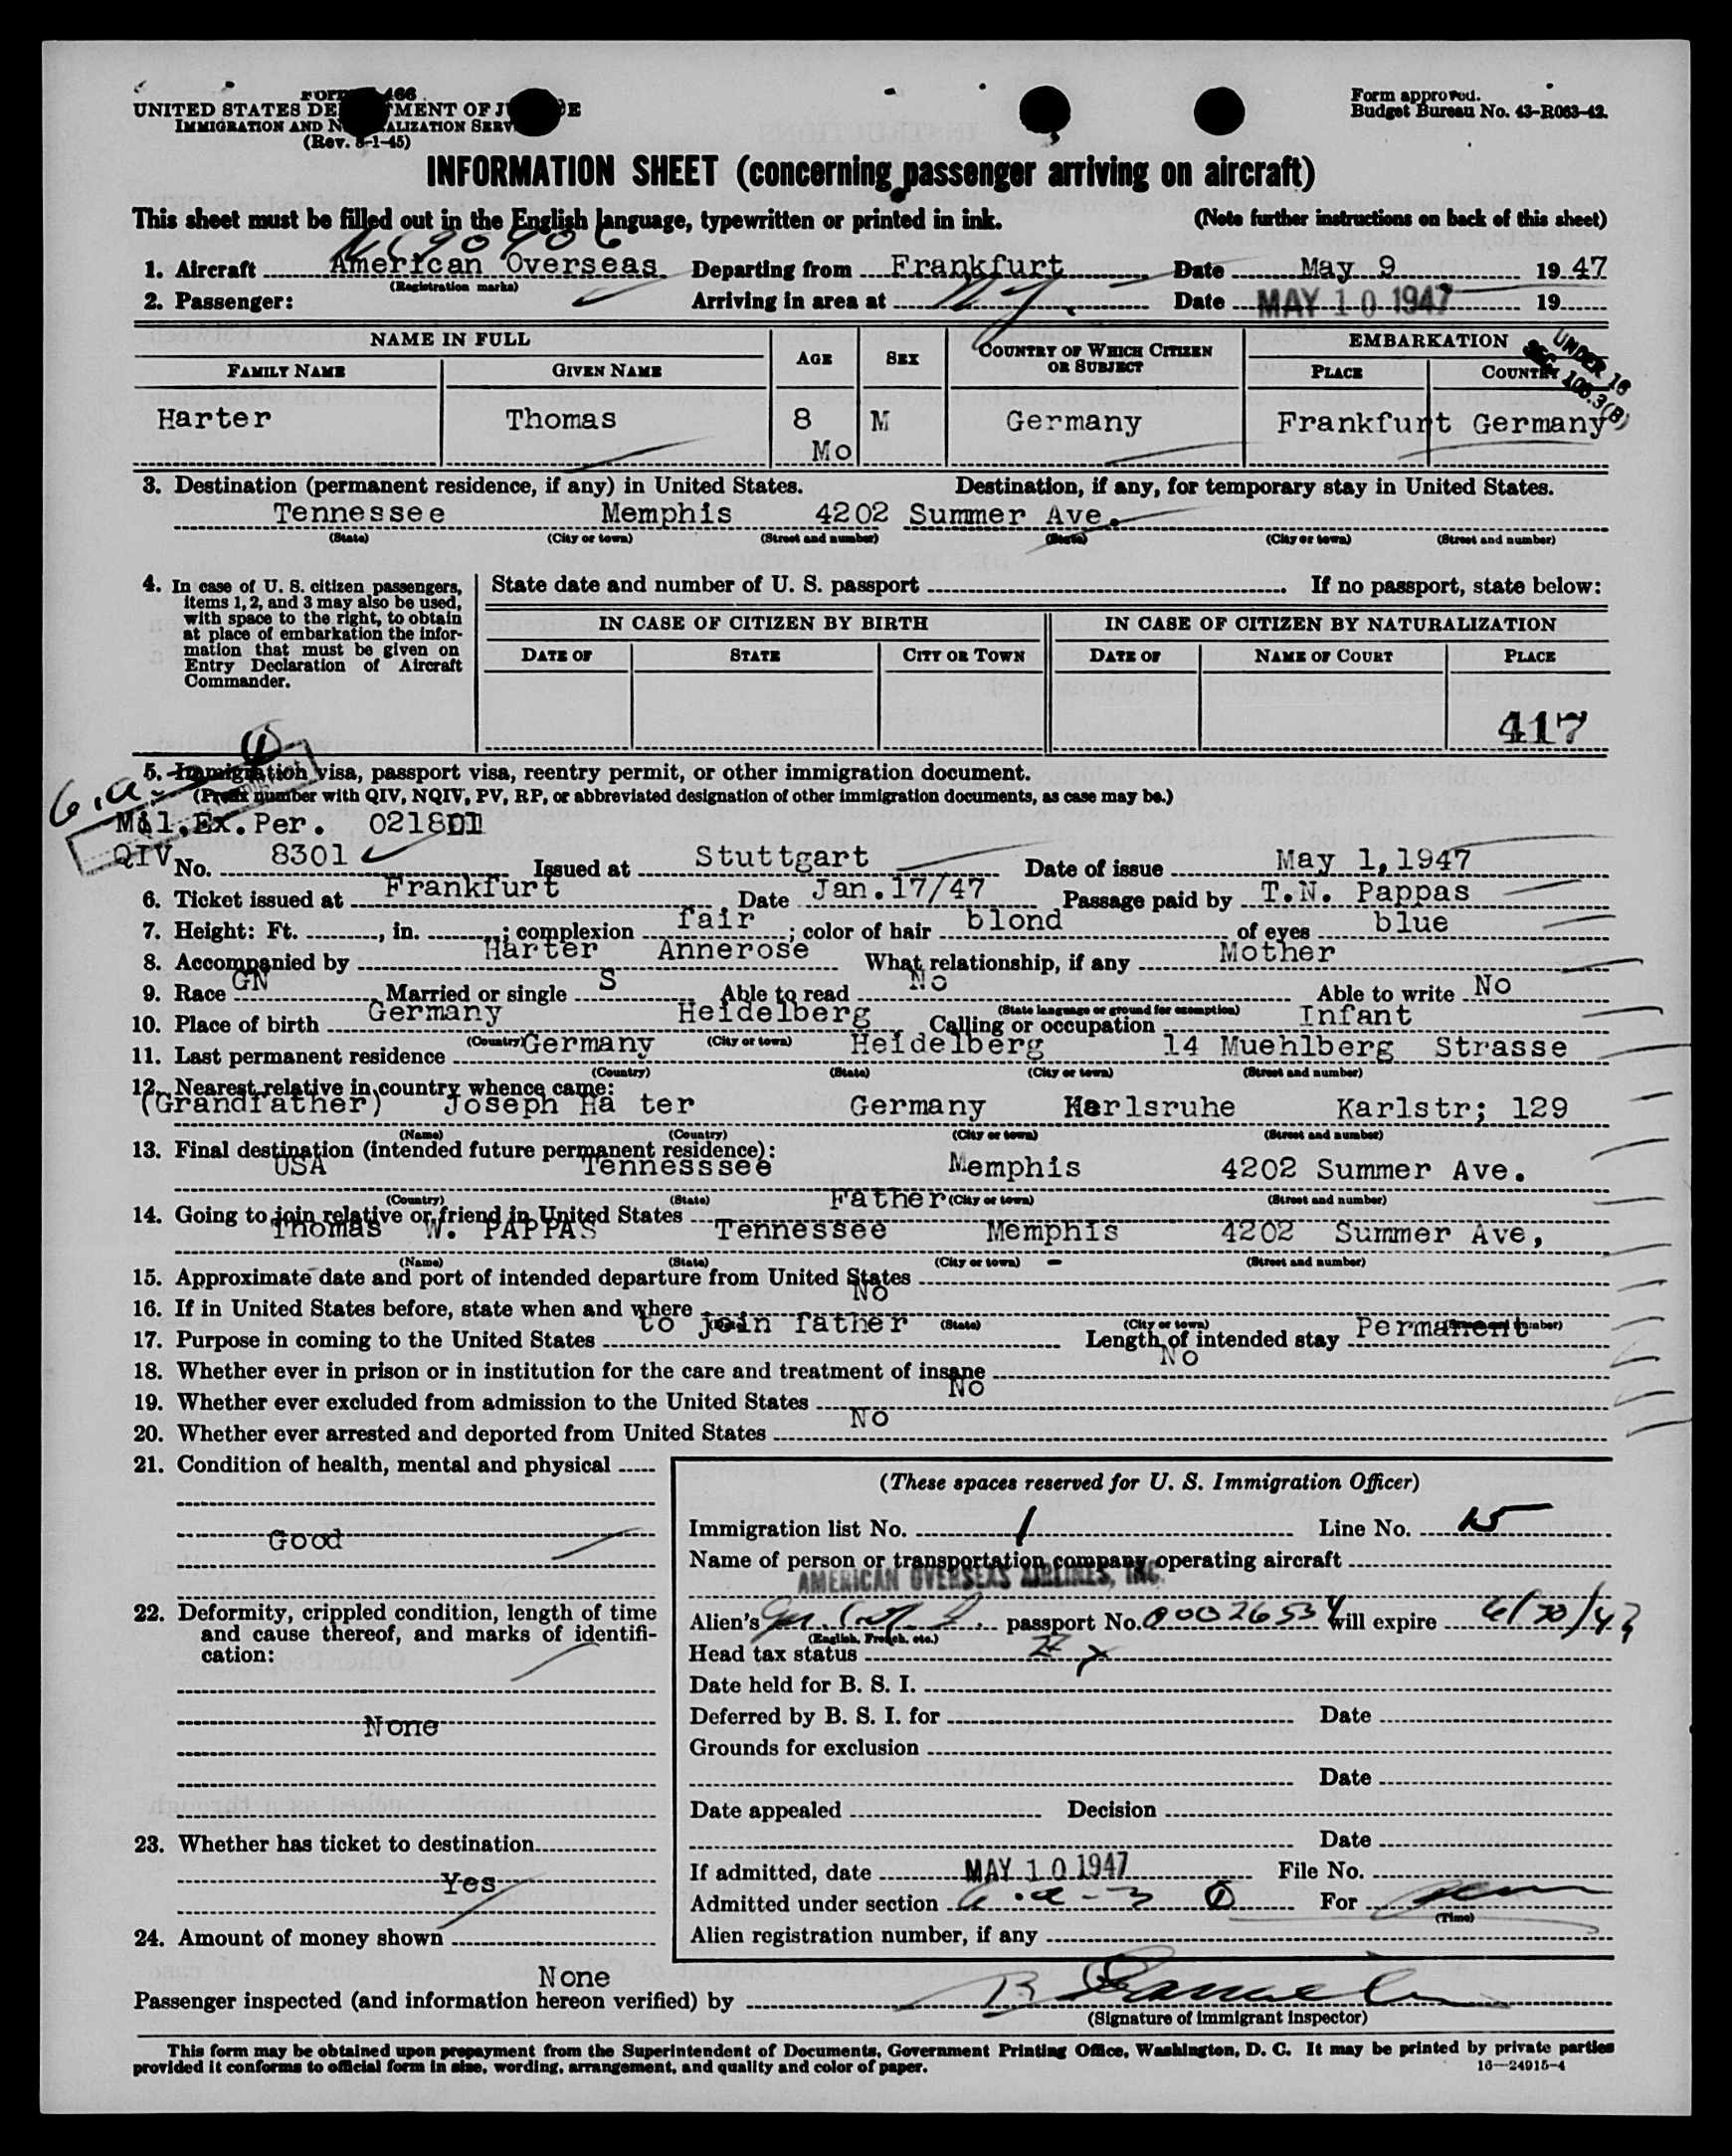 Form 466
UNITED STATES DE MENT OF J E
IMMIGRATION AND N ALIZATION SERV
(Rev. 8-1-45)
Form approved.
Budget Bureau No. 43-R063-42.
INFORMATION SHEET (concerning passenger arriving on aircraft)
This sheet must be filled out in the English language, typewritten or printed in ink. (Note further instructions on back of this sheet)
NC 90906
1. Aircraft American Overseas Departing from Frankfurt Date May 9 1947
(Registration marks)
2. Passenger: Arriving in area at N.Y. Date MAY 10 1947 19
NAME IN FULL AGE SEX COUNTRY OF WHICH CITIZEN OR SUBJECT EMBARKATION
FAMILY NAME GIVEN NAME PLACE COUNTRY
UNDER 16
SEC 108.3(B)
Harter Thomas 8 M Germany Frankfurt Germany
Mo
3. Destination (permanent residence, if any) in United States. Destination, if any, for temporary stay in United States.
Tennessee Memphis 4202 Summer Ave.
(State) (City or town) (Street and number) (State) (City or town) (Street and number)
4. In case of U. S. citizen passengers, items 1, 2, and 3 may also be used, with space to the right, to obtain at place of embarkation the information that must be given on Entry Declaration of Aircraft Commander.
State date and number of U. S. passport . If no passport, state below:
IN CASE OF CITIZEN BY BIRTH IN CASE OF CITIZEN BY NATURALIZATION
DATE OF STATE CITY OR TOWN DATE OF NAME OF COURT PLACE
417
5. Immigration visa, passport visa, reentry permit, or other immigration document.
(Prefix number with QIV, NQIV, PV, RP, or abbreviated designation of other immigration documents, as case may be.)
Mil.Ex.Per.
QIV No. 8301 Issued at Stuttgart Date of issue May 1,1947
6. Ticket issued at Frankfurt Date Jan.17/47 Passage paid by T.N. Pappas
7. Height: Ft. , in. ; complexion fair ; color of hair blond of eyes blue
8. Accompanied by Harter Annerose What relationship, if any Mother
9. Race GN Married or single S Able to read No Able to write No
(State language or ground for exemption)
10. Place of birth Germany Heidelberg Calling or occupation Infant
(Country) (City or town)
11. Last permanent residence Germany Heidelberg 14 Muehlberg Strasse
(Country) (State) (City or town) (Street and number)
12. Nearest relative in country whence came:
(Grandfather) Joseph Ha ter Germany Karlsruhe Karlstr; 129
(Name) (Country) (City or town) (Street and number)
13. Final destination (intended future permanent residence):
USA Tennesssee Memphis 4202 Summer Ave.
(Country) (State) (City or town) (Street and number)
14. Going to join relative or friend in United States Father
Thomas W. PAPPAS Tennessee Memphis 4202 Summer Ave,
(Name) (State) (City or town) (Street and number)
15. Approximate date and port of intended departure from United States -
16. If in United States before, state when and where No
(State) (City or town)
17. Purpose in coming to the United States to join father Length of intended stay Permanent
18. Whether ever in prison or in institution for the care and treatment of insane No
19. Whether ever excluded from admission to the United States No
20. Whether ever arrested and deported from United States No
21. Condition of health, mental and physical
Good
22. Deformity, crippled condition, length of time and cause thereof, and marks of identification:
None
23. Whether has ticket to destination
Yes
24. Amount of money shown
None
(These spaces reserved for U. S. Immigration Officer)
Immigration list No. 1 Line No. 15
Name of person or transportation company operating aircraft
AMERICAN OVERSEAS AIRLINES, INC.
Alien's passport No. 00026534 will expire 6/30/47
(English, French, etc.)
Head tax status
Date held for B. S. I.
Deferred by B. S. I. for Date
Grounds for exclusion
Date
Date appealed Decision
Date
If admitted, date MAY 10 1947 File No.
Admitted under section 6.a-3 ① For
(Time)
Alien registration number, if any
Passenger inspected (and information hereon verified) by
(Signature of immigrant inspector)
This form may be obtained upon prepayment from the Superintendent of Documents, Government Printing Office, Washington, D. C. It may be printed by private parties
provided it conforms to official form in size, wording, arrangement, and quality and color of paper. 16—24915-4